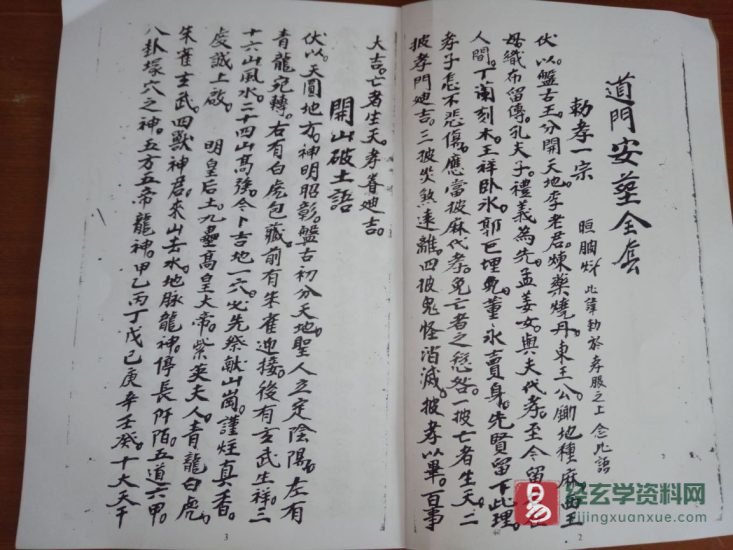 道門安葬全集
勅孝一宗
此葦勅於孝服之上 念此語
伏以。盤古王。分開天地。李老君。煉藥燒丹。東王公。鋤地種麻。西王
母。織布留傳。孔夫子。禮義為先。孟姜女。與夫代孝。至今留
人間。丁蘭刻木。王祥卧氷。郭巨埋兒。董永賣身。先賢留下此理。
孝子怎不悲傷。應當披麻代孝。免亡者之愆咎。一披亡者生天。二
披孝門迪吉。三披災煞遠離。四披鬼怪消滅。披孝以畢。百事
大吉。亡者生天。孝眷迪吉。
開山破土語
伏以。天圓地方。神明昭彰。盤古初分天地。聖人立定陰陽。左有
青龍宛轉。右有白虎包藏。前有朱雀迎接。後有玄武生祥。二
十六山風水。二十四山高強。今卜吉地一穴。必先祭献山崗。謹炷真香。
虔誠上啟。 明皇后土。九壘高皇大帝。紫英夫人。青龍白虎。
朱雀玄武。四獸神君。來山去水。地脉龍神。停長阡陌。五道六甲。
八卦塚穴之神。五方五帝龍神。甲乙丙丁戊己庚辛壬癸。十大天干
2
3
易
经玄学资料网
yijingxuanxue.com